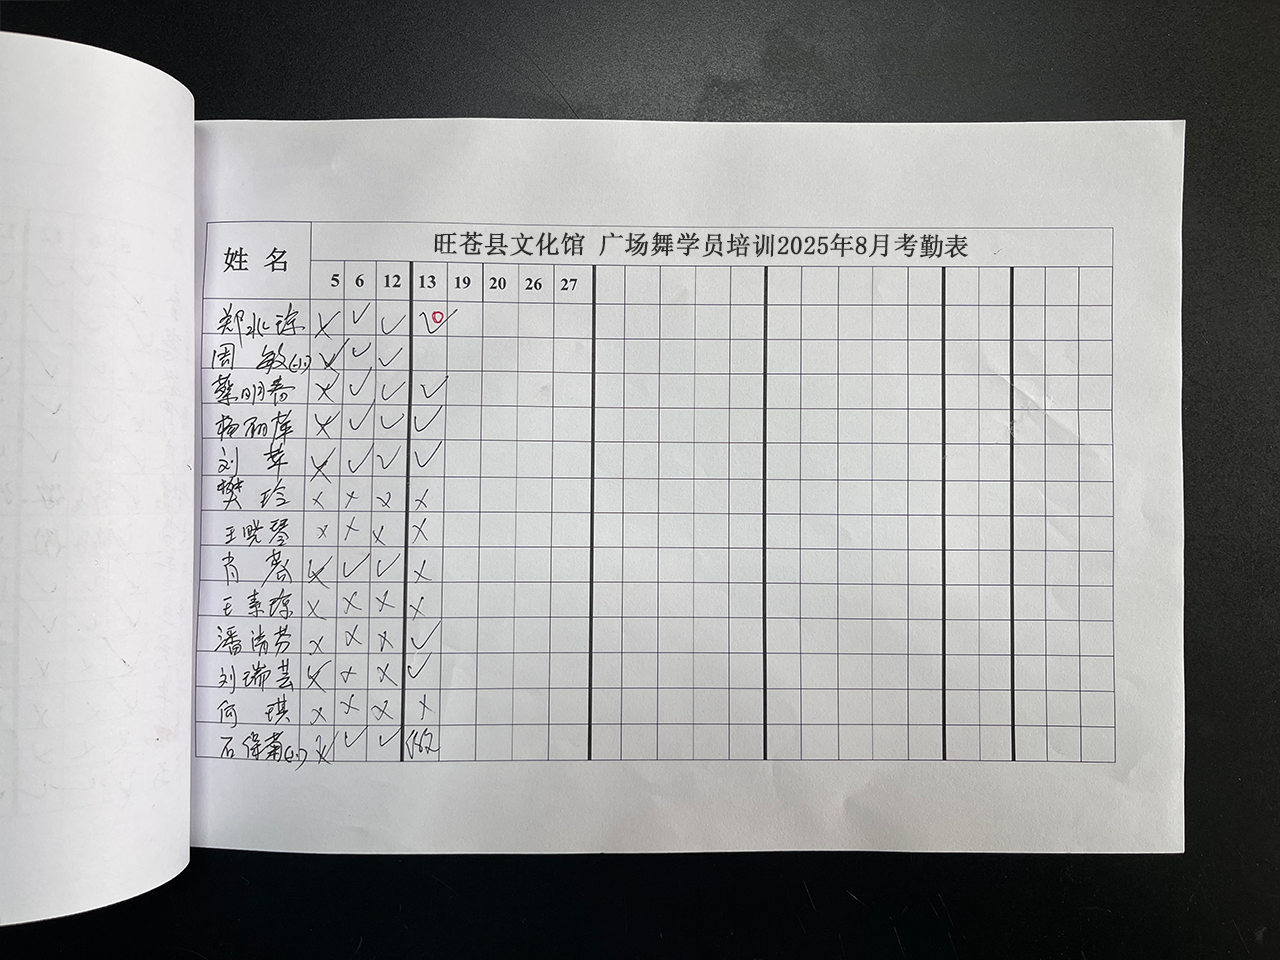 旺苍县文化馆 广场舞学员培训2025年8月考勤表
姓 名 5 6 12 13 19 20 26 27
郑水琼 × ✓ ✓ ✓
周 敏(小) × ✓ ✓
蔡明春 × ✓ ✓ ✓
杨丽 × ✓ ✓ ✓
刘 苹 × ✓ ✓ ✓
樊 玲 × × × ×
王晓琴 × × × ×
肖 × ✓ ✓ ×
王素琼 × × × ×
潘清芬 × × × ✓
刘瑞芸 × × × ✓
何 琪 × × × ×
石保菊 × ✓ ✓